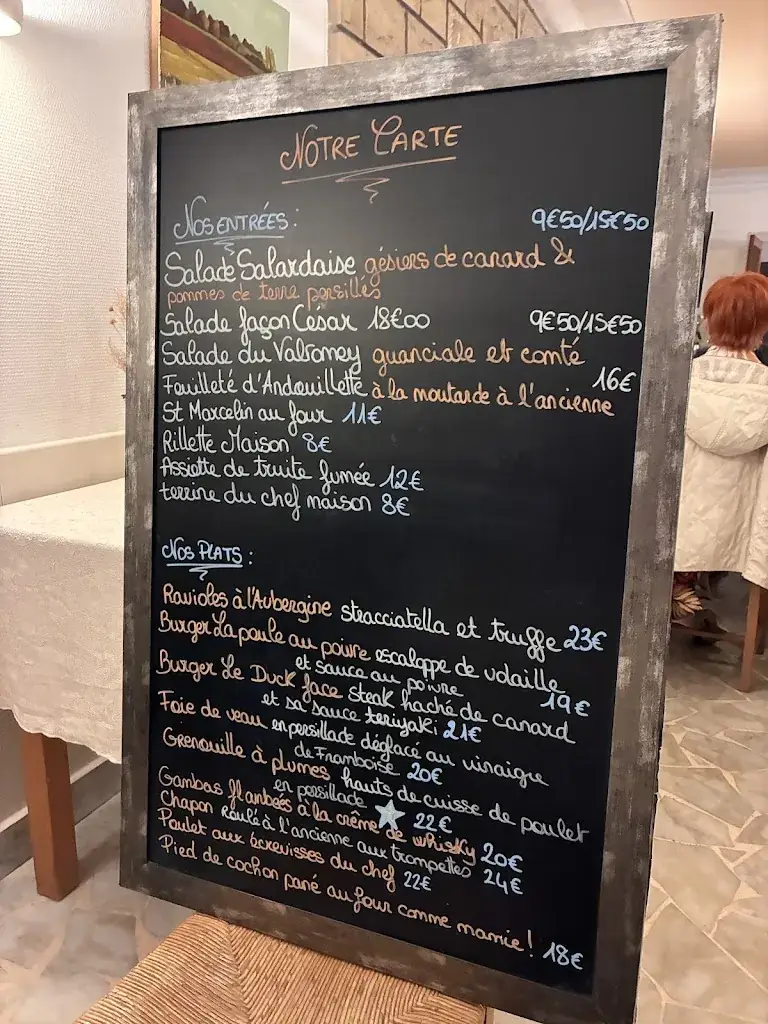 NOTRE CARTE
NOS ENTRÉES : 9€50/15€50
Salade Salardaise gésiers de canard &
pommes de terre persillés
Salade façon César 18€00 9€50/15€50
Salade du Valromey guanciale et comté
16€
Feuilleté d'Andouillette à la moutarde à l'ancienne
St Marcelin au four 11€
Rillette Maison 8€
Assiette de truite fumée 12€
terrine du chef maison 8€
NOS PLATS :
Ravioles à l'Aubergine stracciatella et truffe 23€
Burger La poule au poivre escalope de volaille
et sauce au poivre 19€
Burger Le Duck face steak haché de canard
et sa sauce teriyaki 21€
Foie de veau en persillade déglacé au vinaigre
de Framboise 20€
Grenouille à plumes hauts de cuisse de poulet
en persillade 22€
Gambas flanbées à la crême de whisky 20€
Chapon Roulé à l'ancienne aux trompettes 24€
Poulet aux écrevisses du chef 22€
Pied de cochon pané au four comme mamie! 18€